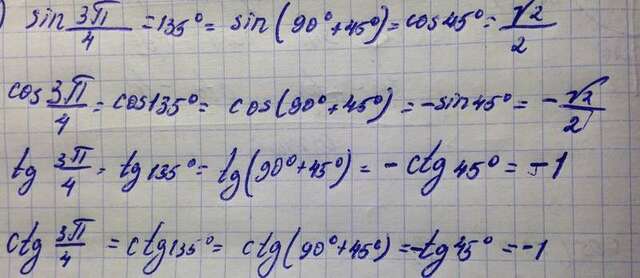 ) sin 3π/4 = 135° = sin (90°+45°) = cos 45° = √2/2
cos 3π/4 = cos 135° = cos (90°+45°) = -sin 45° = -√2/2
tg 3π/4 = tg 135° = tg (90°+45°) = -ctg 45° = -1
ctg 3π/4 = ctg 135° = ctg (90°+45°) = -tg 45° = -1